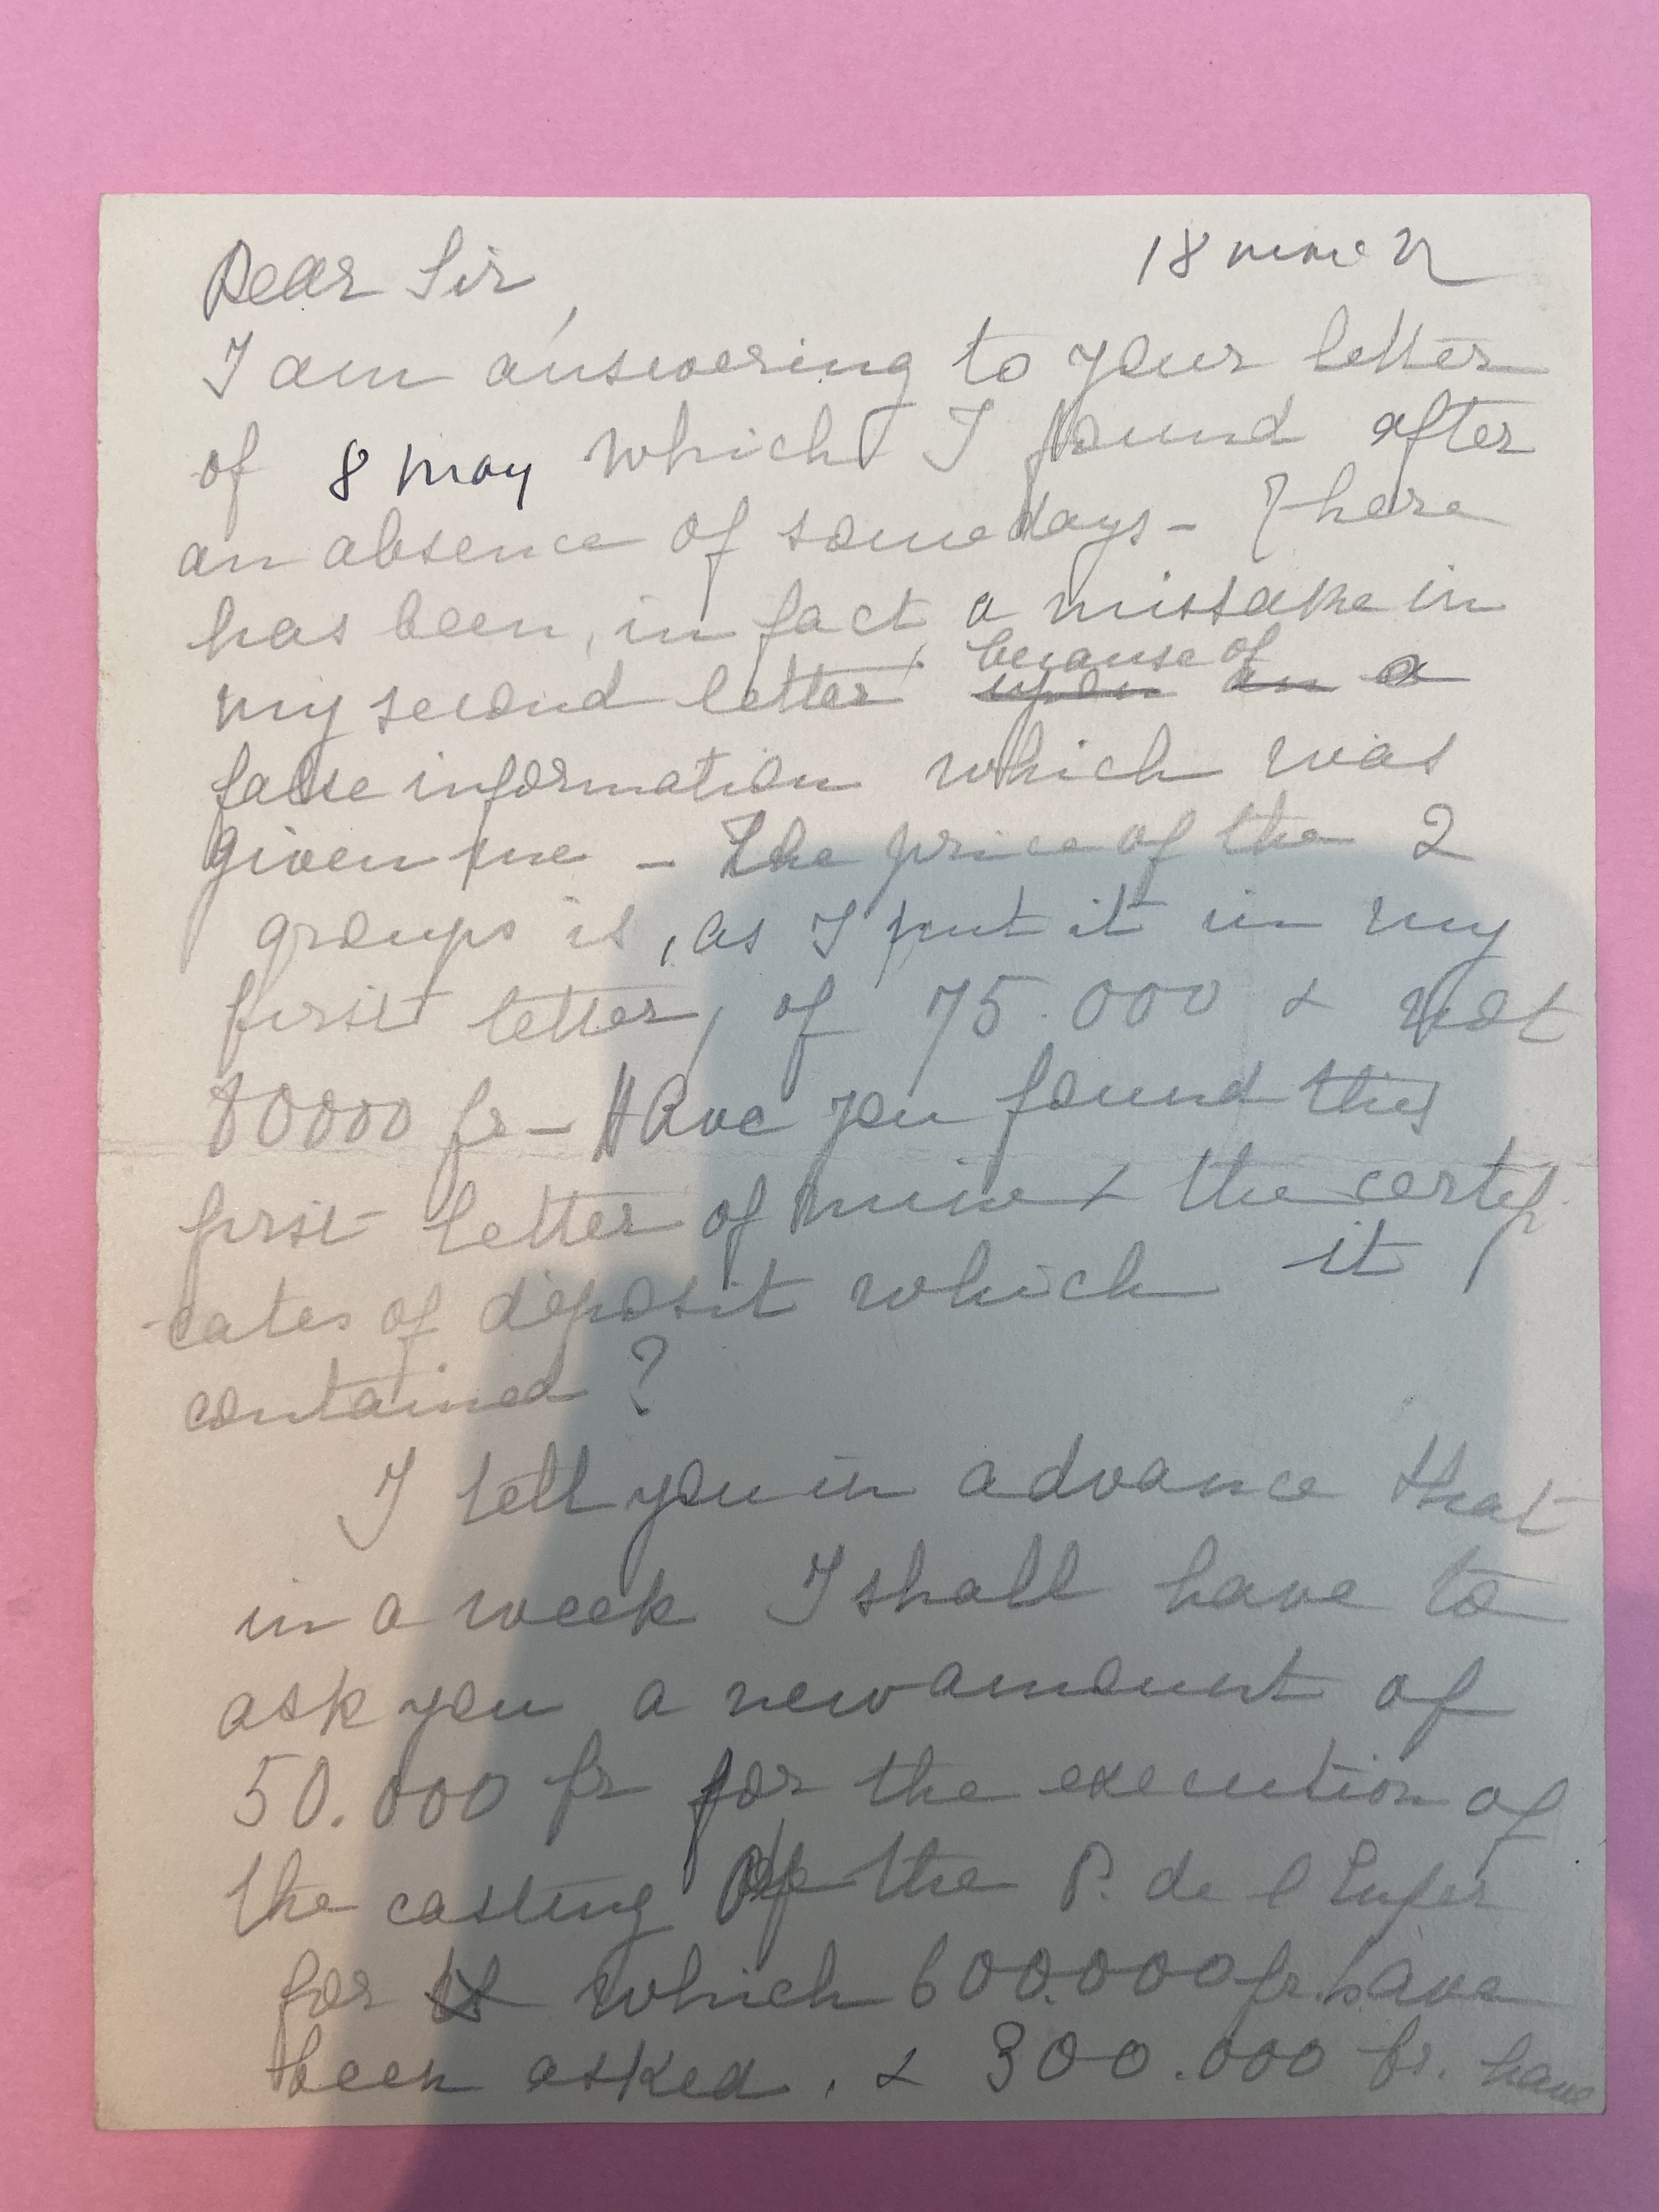 Dear Sir,
18
I am answering to your letter
of 8 may which I found after
an absence of some days - There
has been, in fact a mistake in
because of
my second letter, upon an a
false information which was
given me - The price of the 2
groups is, as I put it in my
first letter, of 75.000 & not
80000 fr - Have you found this
first letter of mine & the certifi
-cates of deposit which it
contained ?
I tell you in advance that
in a week I shall have to
ask you a new amount of
50.000 fr for the execution of
the casting of the P. de l Enfer
for which 600.000 fr. have
been asked, & 300.000 fr. have